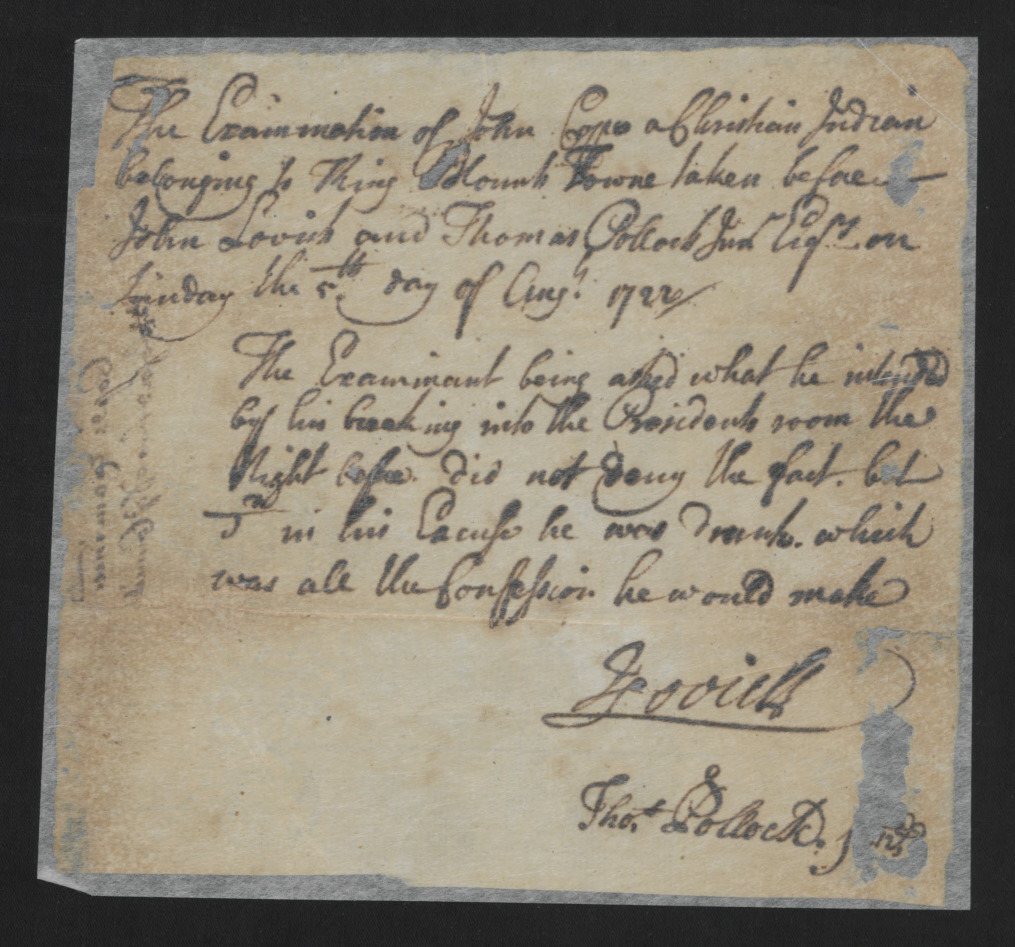 The Examination of John Cope a Christian Indian
belonging to King Blounts Towne taken before
John Lovick and Thomas Pollock Junr Esqrs on
Sunday the 5th day of Augt 1722
The Examinant being asked what he intended
by his breaking into the Presidents room the
Night before. did not deny the fact. but
in his Excuse he was drunk. which
was all the Confession he would make
J Lovick
Thos Pollock. Junr